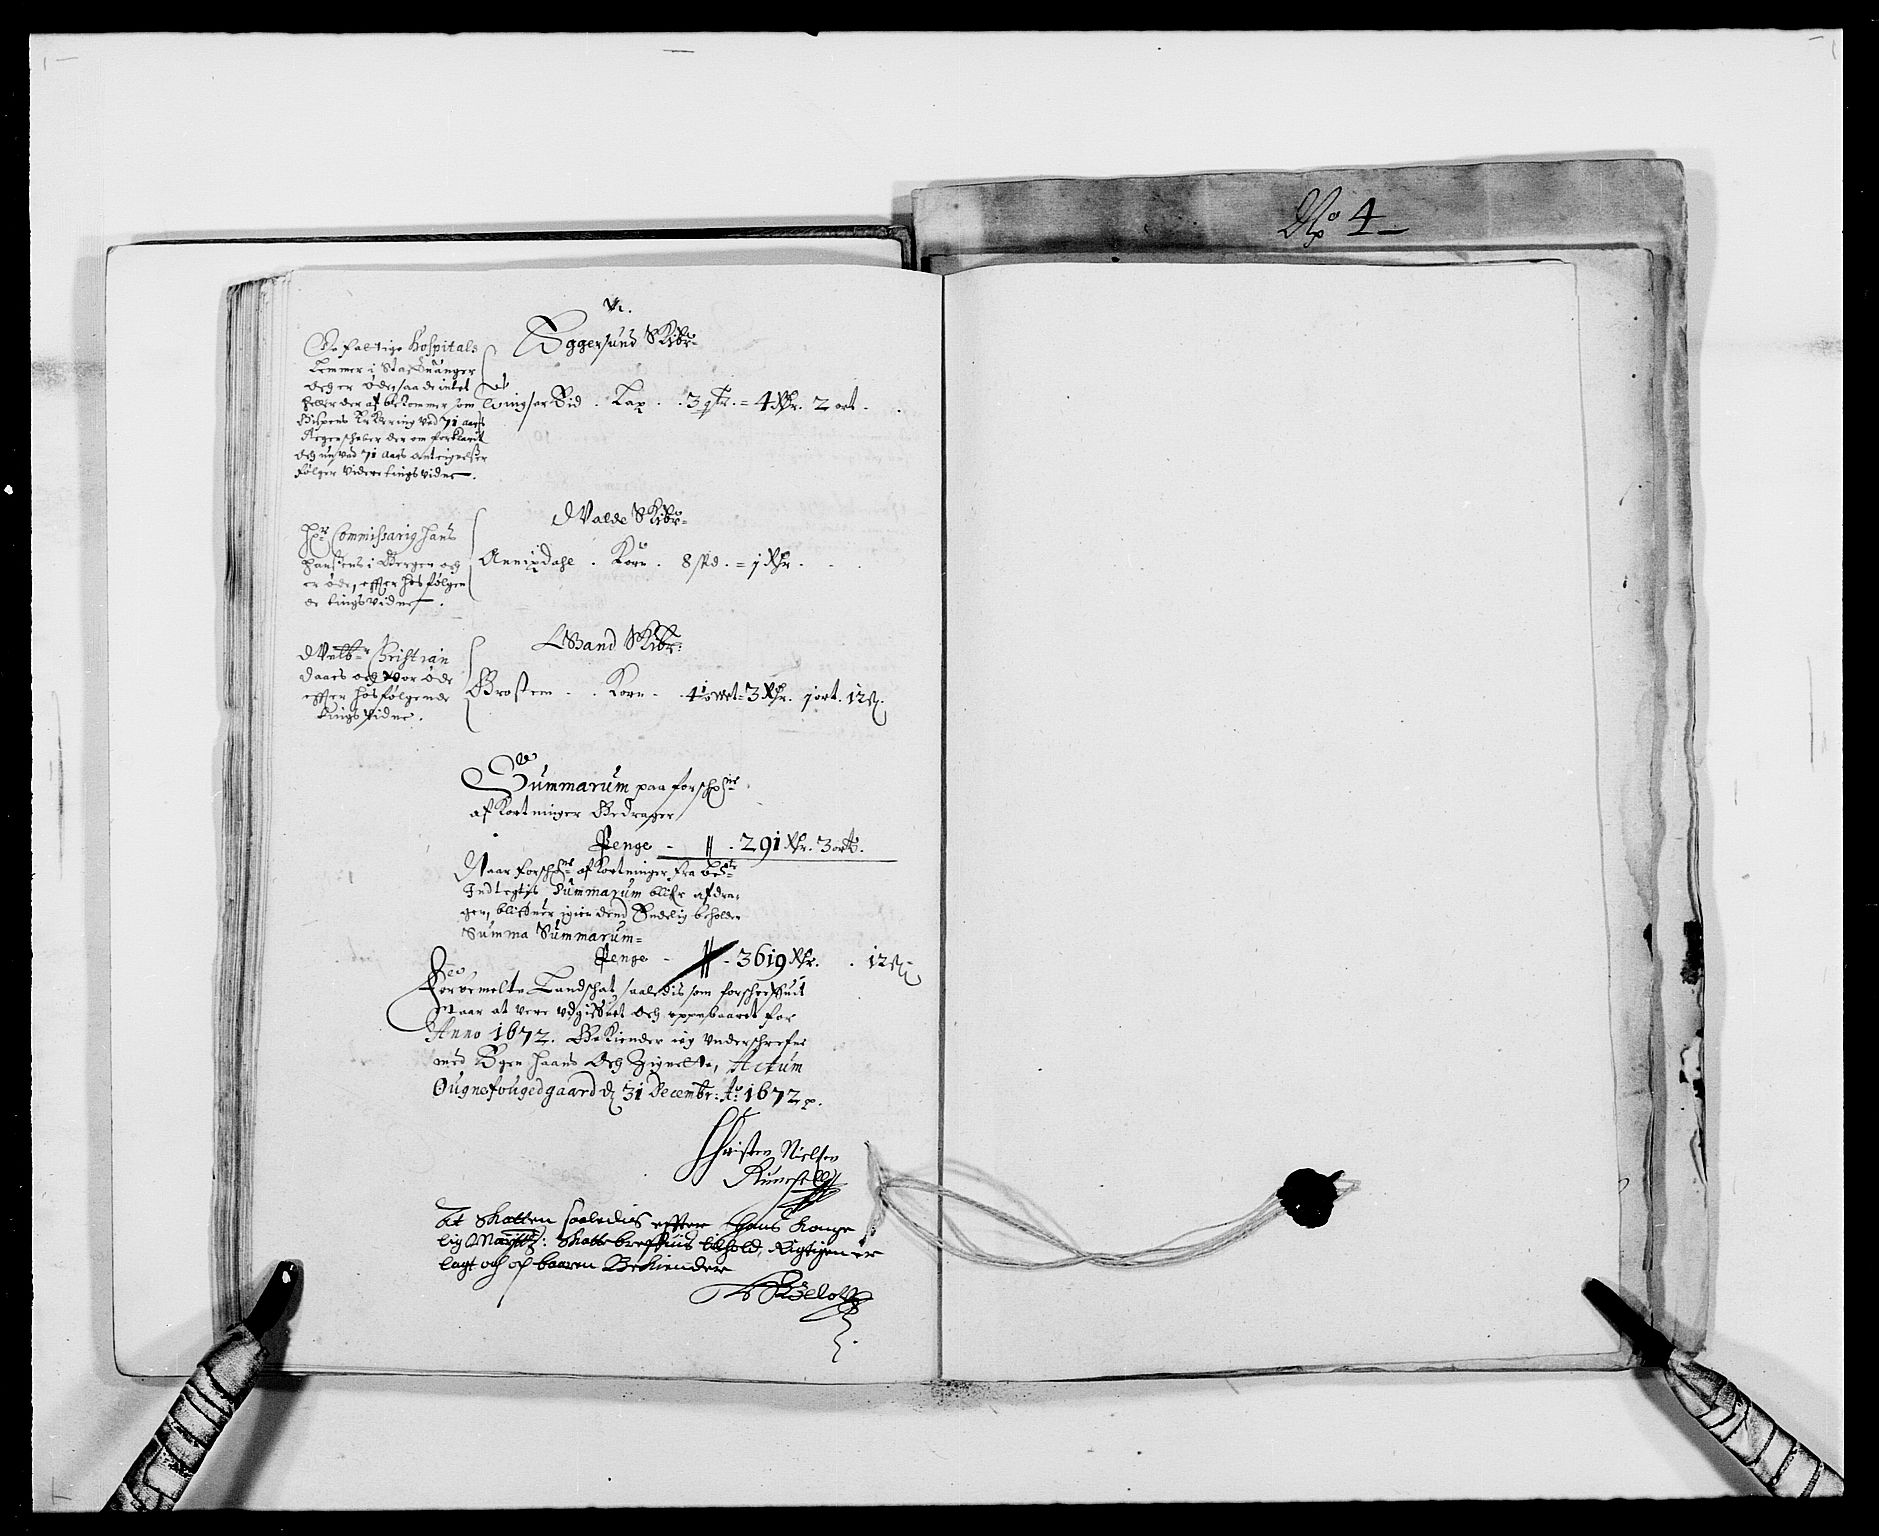 No 4
Eggersund Skibr=
De fattige Hospitals
Lemmer i Staffuanger
och er øde, saa de intet
heller der af bekommer som
Bispens Qvitering ved 71 aars
Regenschaber der om forklarer
och nu ved 71 aars antegnelser
følger videre tings vidne.
Sid . Lax . . 3 qtr. = 4 Rdr. 2 ort .
Walde Skibr=
Hr Commissarig Hans
Hansens i Bergen och
er øde, effter hos følgen
de tings vidne.
Annixdahl . Korn . 8 spd . = 1 Rdr .
Mand Skibr:
Welb: Christian
Daaes och for øde
effter hosfølgende
tings vidne.
Brostem . . Korn . . 3 Rdr. 1 ort. 12 s.
Summarum paa forschne
afKortninger Bedrager
Penge - // . 291 Rdr. 3 ort.
Naar forschne afKortninger fra be
Indtegts Summarum blifr afdra-
gen, bliffuer igien dend Endelig beholden
Summa Summarum=
Penge - // - 3619 Rdr. . 12 s
Forbemelte Landschat, saaledis som forschreffuit
staar at vere udgiffuet och oppebaaret for
Anno 1672. Bekiender ieg underschrefne
med Egen haand Och Zignette, Actum
Ougnefougedgaard d 31 Decembr: Ao 1672 p.
Christen Nielsen
At Skatten saaledis effter Hans Konge
lig Maytz: Skatte breffuis tilhold, Rigtigen er
lagt och op baaren Bekiender